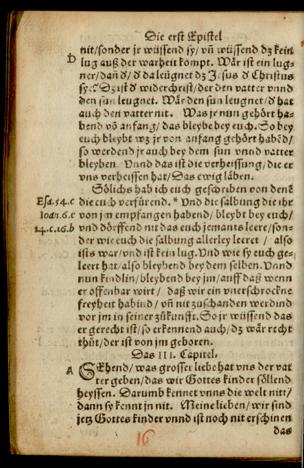 Die erst Epistel
nit/sonder jr wüssend sy/ vñ wüssend dz kein
D lug auß der warheit kompt. Wår ist ein lug-
ner/dañ d/ d da leügnet dz Jesus d Christus
sy? Dz ist d widerchrist/ der den vatter vnnd
den sun leugnet. Wår den sun leugnet/ d hat
auch den vatter nit. Was jr nun gehört ha-
bend võ anfang/ das bleybe bey euch. So bey
euch bleybt wz jr von anfang gehört habẽd/
so werdend jr auch bey dem sun vnnd vatter
bleyben. Vnnd das ist die verheissung/ die er
vns verheissen hat/ Das ewig låben.
Sölichs hab ich euch geschriben von denẽ
Esa.54.c die euch verfürend. * Vnd die salbung die jhr
Ioan.6.e von jm empfangen habend/ bleybt bey euch/
14.c.16.b vnd dörffend nit das euch jemants leere/ son-
der wie euch die salbung allerley leeret / also
ists war/ vnd ist kein lug. Vnd wie sy euch ge-
leert hat/ also bleybend bey dem selben. Vnnd
nun kindlin/ bleybend bey jm/ auff daß wenn
er offenbar wirt/ daß wir ein vnerschrockne
freyheit habind/ vñ nit zuschanden werdind
vor jm in seiner zůkunfft. So jr wüssend das
er gerecht ist/ so erkennend auch/ dz wår recht
thůt/ der ist von jm geboren.
Das III. Capitel.
A SEhend/ was grosser liebe hat vns der vat
ter geben/ das wir Gottes kinder söllend
heyssen. Darumb kennet vnns die welt nitt/
dann sy kennt jn nit. Meine lieben/ wir sind
jetz Gottes kinder vnnd ist noch nit erschinen
das
16